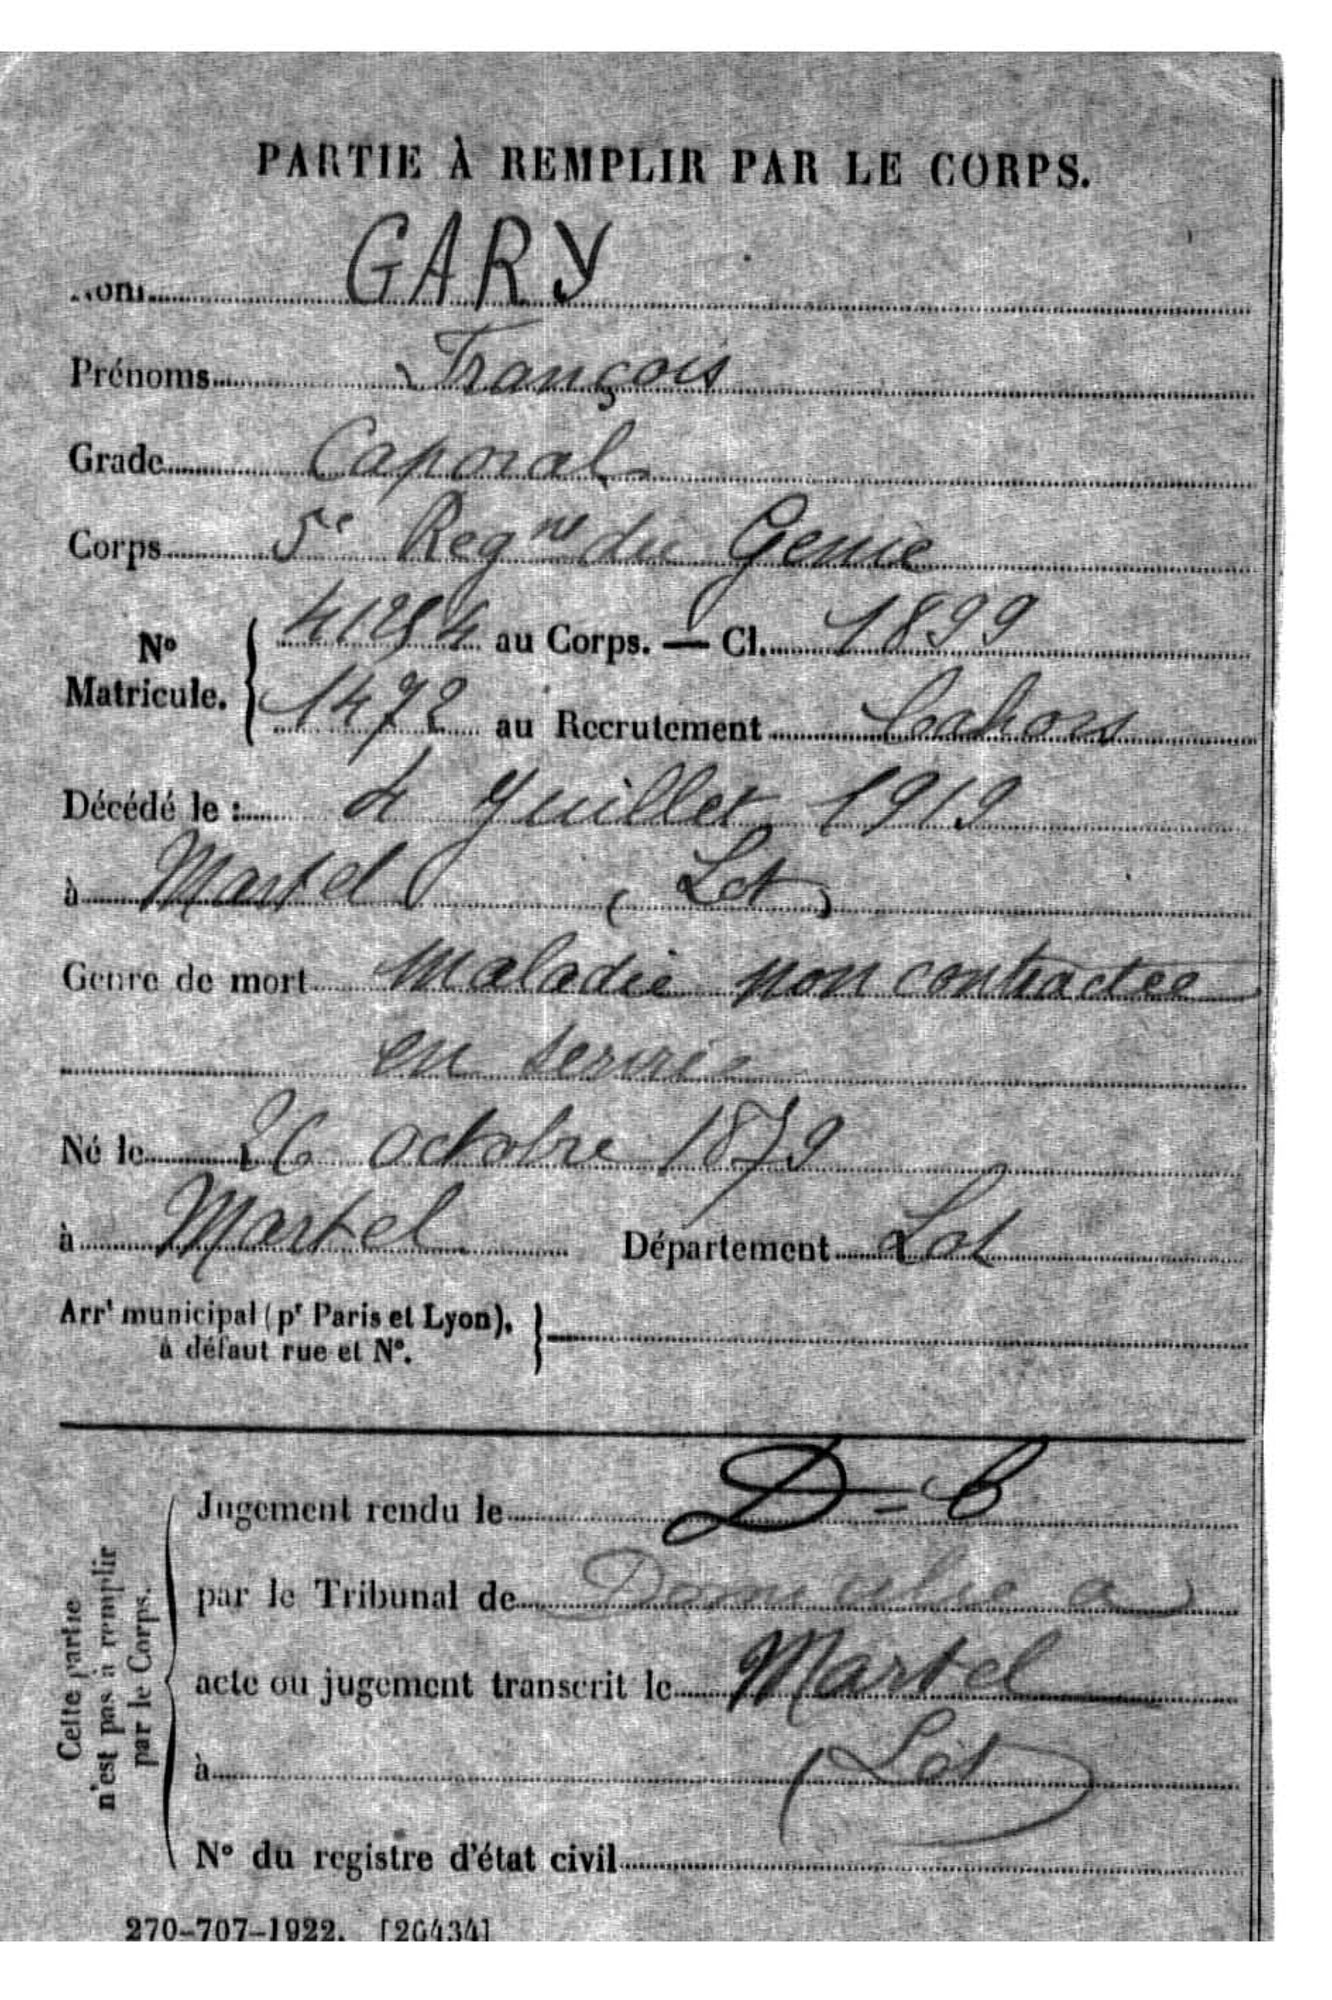 PARTIE À REMPLIR PAR LE CORPS.
Nom GARY
Prénoms François
Grade Caporal
Corps 5e Regnt du Genie
No Matricule. 41254 au Corps. — Cl. 1899
1472 au Recrutement Cahors
Décédé le : 4 Juillet 1919
à Martel (Lot)
Genre de mort Maladie non contractée
en service
Né le 26 Octobre 1879
à Martel Département Lot
Arrt municipal (pr Paris et Lyon),
à défaut rue et No.
Cette partie
n'est pas à remplir
par le Corps.
Jugement rendu le D=C
par le Tribunal de Domicilié a
acte ou jugement transcrit le Martel
à (Lot)
No du registre d'état civil
270-707-1922. [26434]